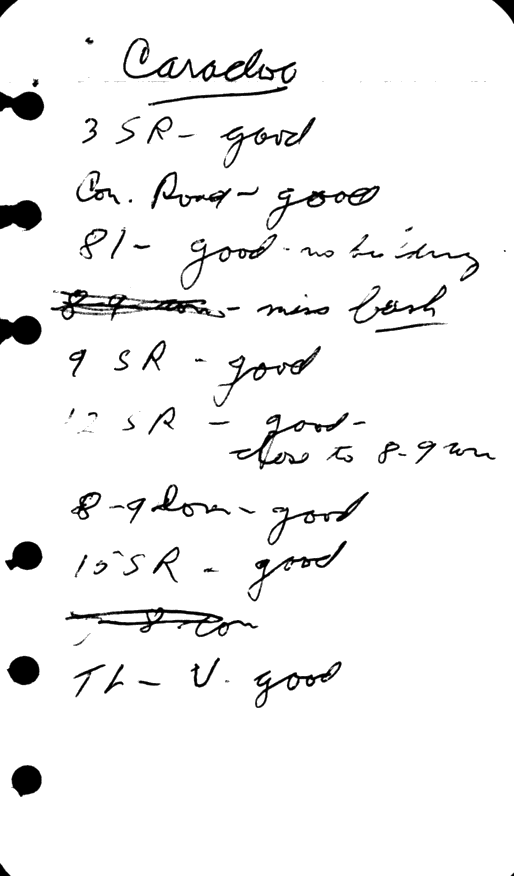 Caradoc
3 SR - good
Con. Road - good
81 - good - no building
8-9 con - miss bush
9 SR - good
12 SR - good -
close to 8-9 con
8-9 con - good
15 SR - good
8 con
TL - V. good